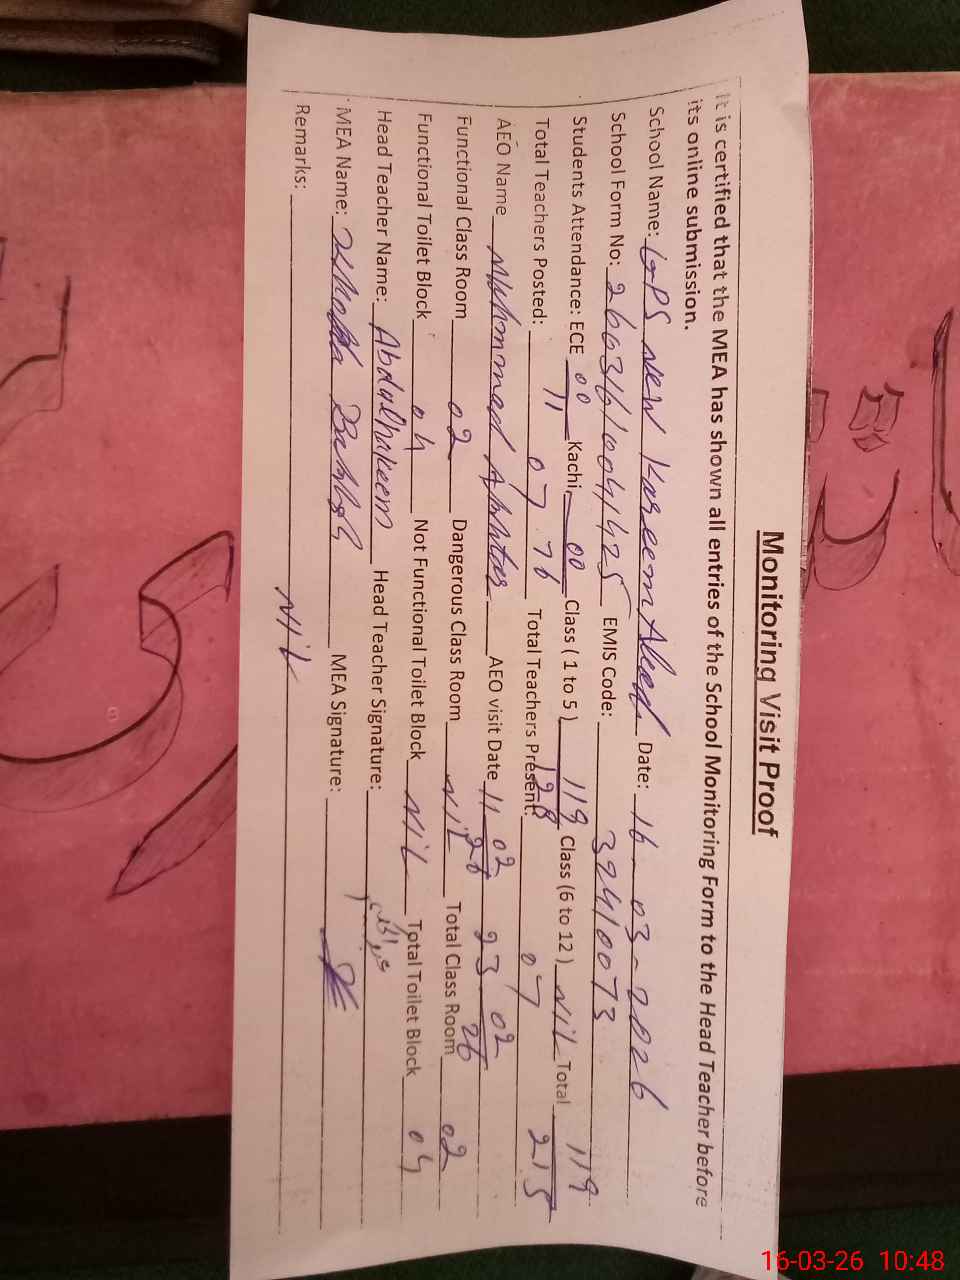 Monitoring Visit Proof
It is certified that the MEA has shown all entries of the School Monitoring Form to the Head Teacher before
its online submission.
School Name: GPS New Kareem Abad Date: 16-03-2026
School Form No: EMIS Code: 32410073
Students Attendance: ECE 00/11 Kachi 00/76 Class (1 to 5) 119/128 Class (6 to 12) NIL Total 119/215
Total Teachers Posted: 07 Total Teachers Present: 07
AEO Name AEO visit Date 11 02/26 23 02/26
Functional Class Room 02 Dangerous Class Room NIL Total Class Room 02
Functional Toilet Block 04 Not Functional Toilet Block NIL Total Toilet Block 04
Head Teacher Name: Abdulhakeem Head Teacher Signature:
MEA Name: MEA Signature:
Remarks: NIL
16-03-26 10:48